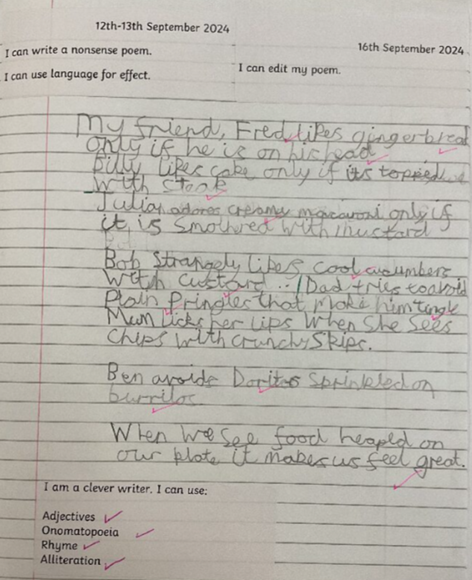 12th-13th September 2024
I can write a nonsense poem.
16th September 2024
I can use language for effect.
I can edit my poem.
My friend, Fred likes gingerbread
only if he is on his head
Billy likes cake only if its topped
with steak
Julian adores creamy macaroni only if
it is smothred with mustard
Bob Strangely likes cool cucumbers
with custard .. Dad tries to avoid
Plain Pringles that make him tingle
Mum licks her lips when she sees
chips with crunchy skips.
Ben avoids Doritos sprinkled on
burritos
When we see food heaped on
our plate it makes us feel great.
I am a clever writer. I can use:
Adjectives
Onomatopoeia
Rhyme
Alliteration